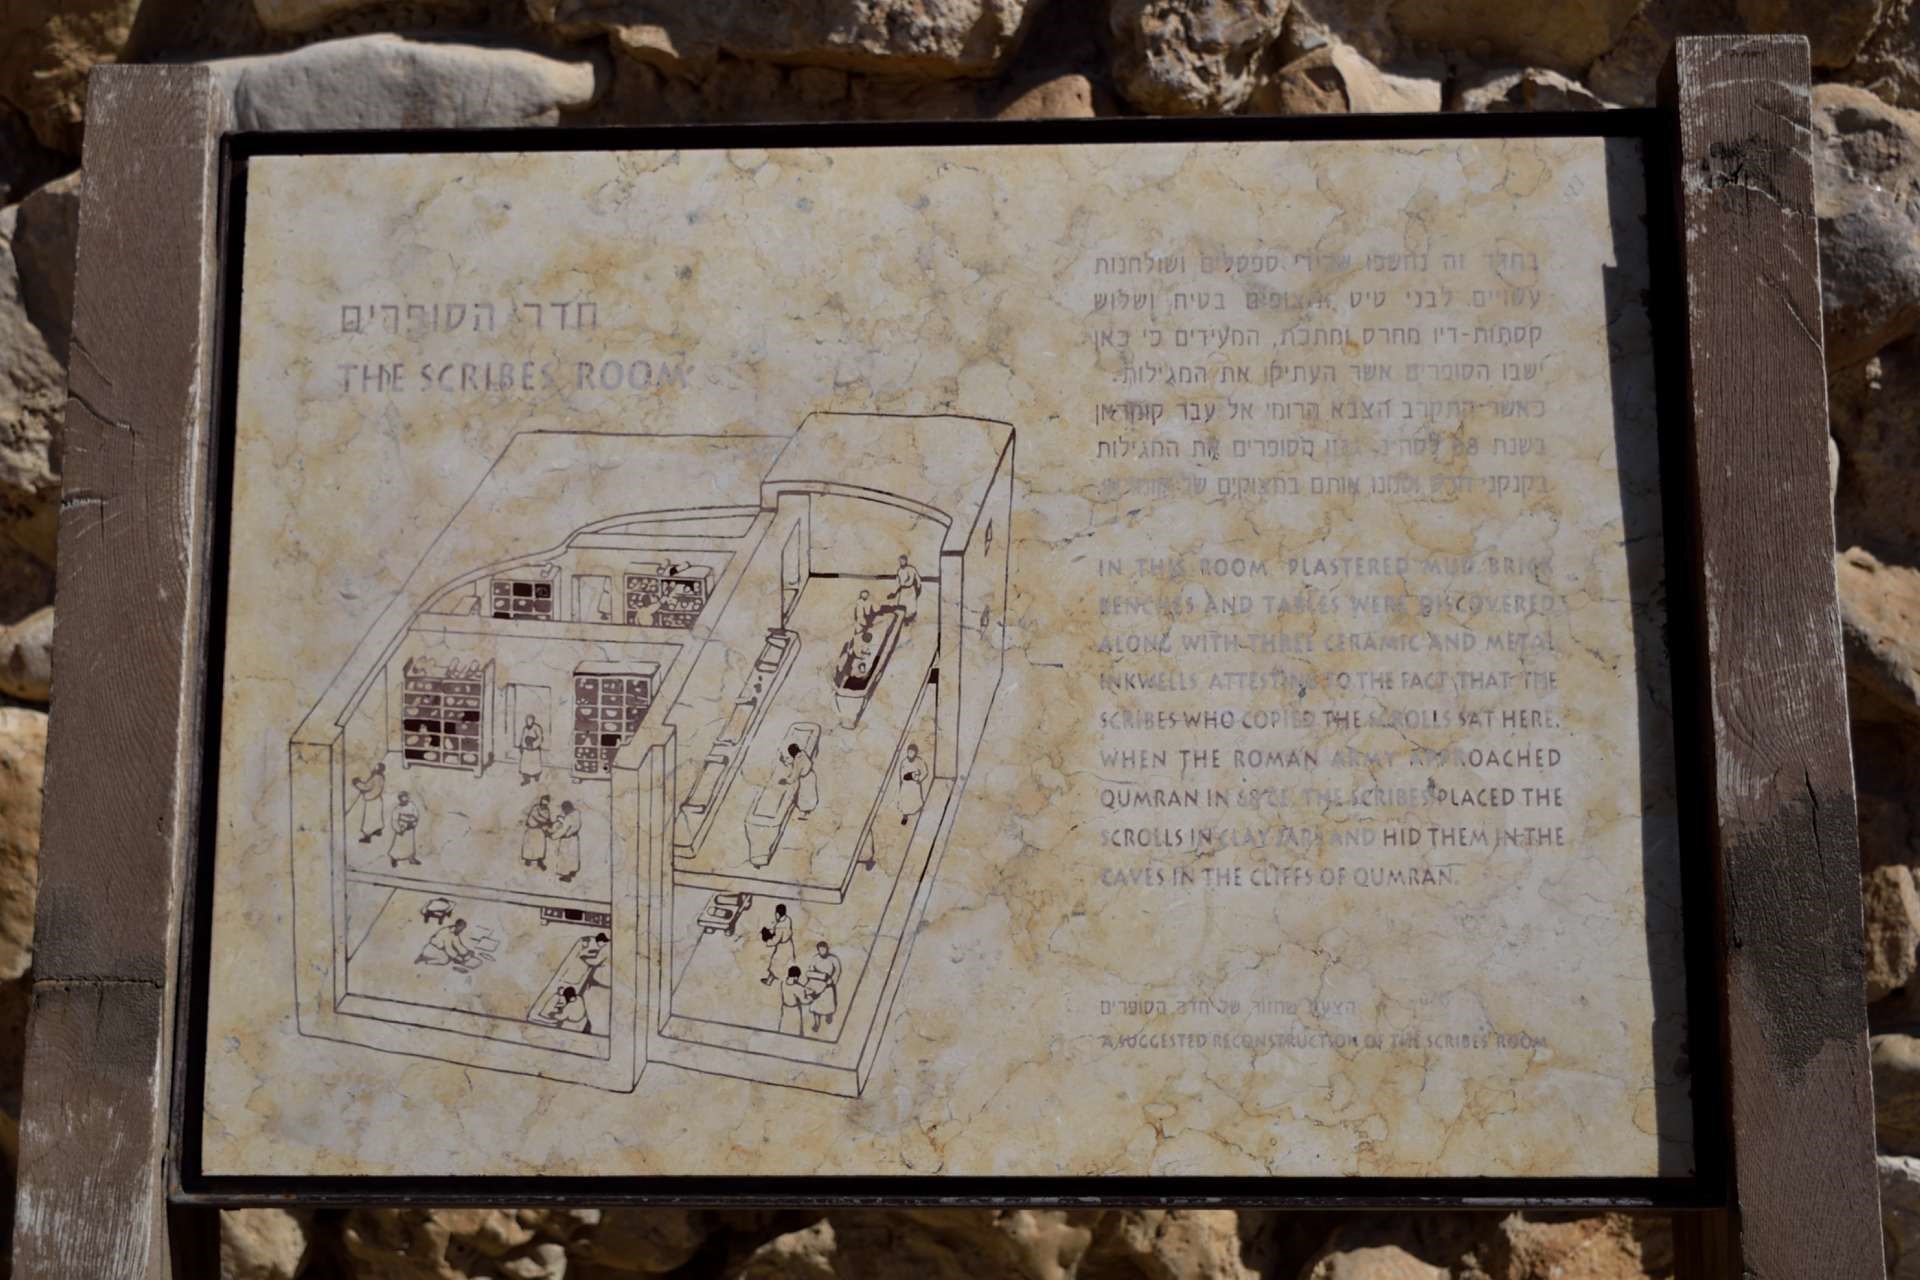 חדר הסופרים
THE SCRIBES ROOM
בחדר זה נחשפו שרידי ספסלים ושולחנות
עשויים לבני טיט מצופים בטיח ושלוש
קסתות-דיו מחרס ומתכת, המעידים כי כאן
ישבו הסופרים אשר העתיקו את המגילות.
כאשר התקרב הצבא הרומי אל עבר קומראן
בשנת 68 לסה״נ, גנזו הסופרים את המגילות
בקנקני חרס וטמנו אותם במצוקים של
IN THIS ROOM PLASTERED MUD BRICK
BENCHES AND TABLES WERE DISCOVERED
ALONG WITH THREE CERAMIC AND METAL
INKWELLS ATTESTING TO THE FACT THAT THE
SCRIBES WHO COPIED THE SCROLLS SAT HERE.
WHEN THE ROMAN ARMY APPROACHED
QUMRAN IN 68 CE, THE SCRIBES PLACED THE
SCROLLS IN CLAY JARS AND HID THEM IN THE
CAVES IN THE CLIFFS OF QUMRAN.
הצעת שחזור של חדר הסופרים
A SUGGESTED RECONSTRUCTION OF THE SCRIBES' ROOM